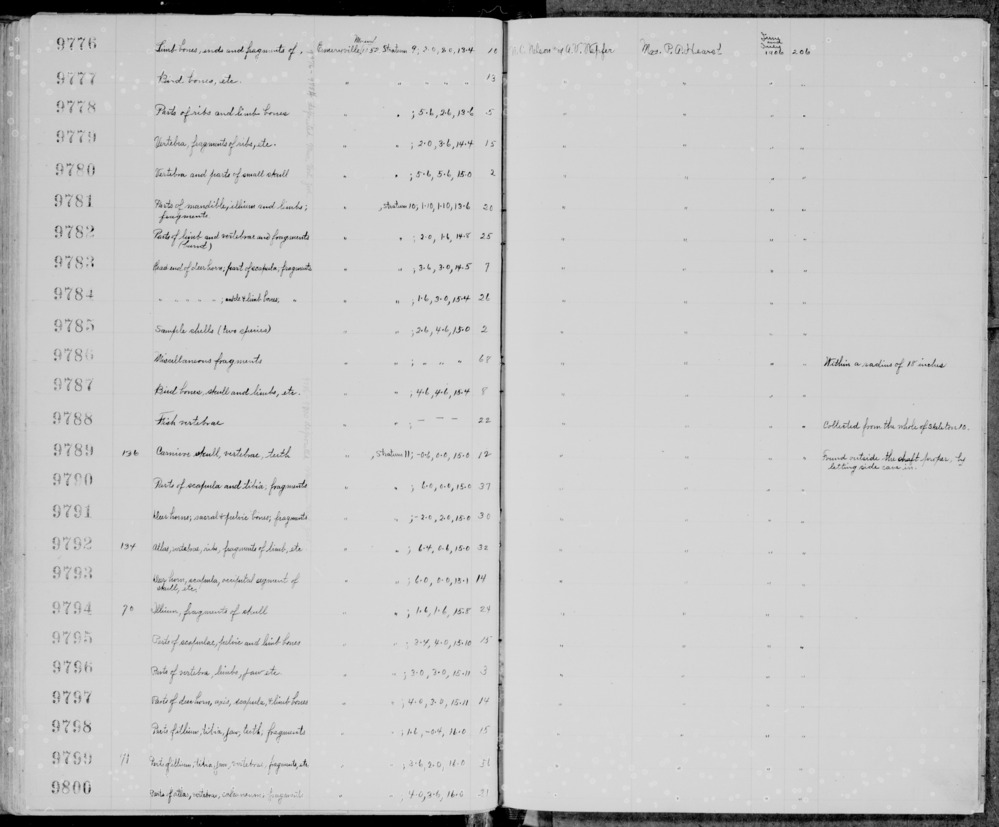 9776 Limb bones, ends and fragments of, Emeryville, Mound Stratum 9; 2-0, 2-0, 13-4 10 Mrs. P. A. Hearst June and July 1906 206
9777 Bird bones, etc. " " " " " 13 " " " "
9778 Parts of ribs and limb bones " " ; 5-6, 2-6, 13-6 5 " " " "
9779 Vertebra, fragments of ribs, etc. " " ; 2-0, 3-6, 14-4 15 " " " "
9780 Vertebra and parts of small skull " " ; 5-6, 5-6, 15-0 2 " " " "
9781 Parts of mandible, illium and limbs; " , Stratum 10; 1-10, 1-10, 13-6 20 " " " "
fragments
9782 Parts of limb and vertebrae and fragments " " ; 2-0, 1-6, 14-5 25 " " " "
(burnt)
9783 end of deer horn; part of scapula; fragments " " ; 3-6, 3-0, 14-5 7 " " " "
9784 " " " " " ; & limb bones, " " " ; 1-6, 3-0, 15-4 26 " " " "
9785 Sample shells (two species) " " ; 2-6, 4-6, 15-0 2 " " " "
9786 Miscellaneous fragments " " ; " " " 68 " " " " Within a radius of 18 inches
9787 Bird bones, skull and limbs, etc. " " ; 4-6, 4-6, 15-4 8 " " " "
9788 Fish vertebrae " " ; — — — 22 " " " " Collected from the whole of Skeleton 10.
9789 196 Carnivore skull, vertebrae, teeth " , Stratum 11; -0-6, 0-0, 15-0 12 " " " " Found outside the shaft proper, by
letting side cave in.
9790 Parts of scapula and tibia; fragments " " ; 6-0, 0-0, 15-0 37 " " " "
9791 Deer horns; sacral & pelvic bones; fragments " " ; -2-0, 2-0, 15-0 30 " " " "
9792 194 Atlas, vertebrae, ribs, fragments of limb, etc " " ; 6-4, 0-6, 15-0 32 " " " "
9793 Deer horn, scapula, occipital segment of " " ; 6-0, 0-0, 15-1 14 " " " "
skull, etc.
9794 70 Illium, fragments of skull " " ; 1-6, 1-6, 15-8 24 " " " "
9795 Parts of scapulae, pelvic and limb bones " " ; 3-4, 4-0, 15-10 15 " " " "
9796 Parts of vertebra, limbs, jaw etc. " " ; 3-0, 3-0, 15-11 3 " " " "
9797 Parts of deer horn, axis, scapula, & limb bones " " ; 4-0, 3-0, 15-11 14 " " " "
9798 Parts of illium, tibia, jaw, teeth, fragments " " ; 1-6, -0-4, 16-0 15 " " " "
9799 71 Parts of illium, tibia, jaw, vertebrae, fragments, etc " " ; 3-6, 2-0, 16-0 " " " "
9800 Parts of atlas, vertebrae, fragments " " ; 4-0, 2-6, 16-0 21 " " " "